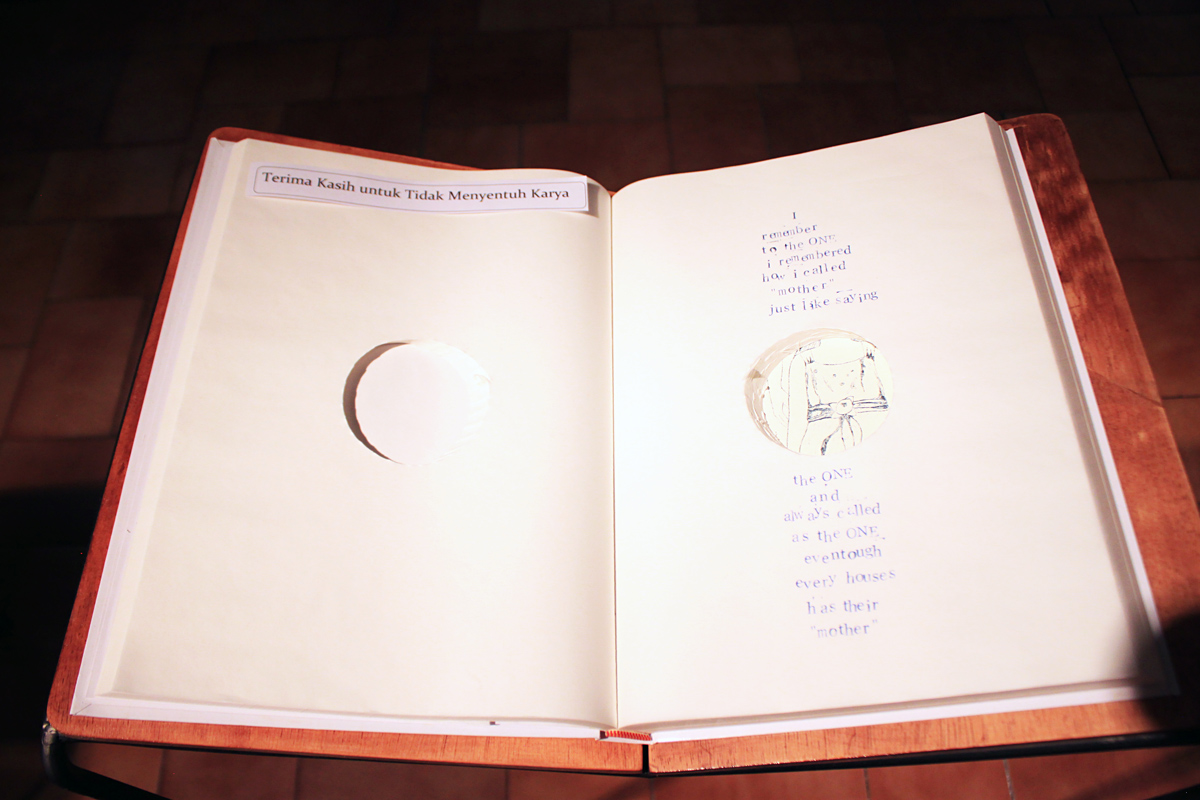 Terima Kasih untuk Tidak Menyentuh Karya
I
remember
to the ONE
i remembered
how i called
"mother"
just like saying
the ONE
and
always called
as the ONE.
eventough
every houses
has their
"mother"